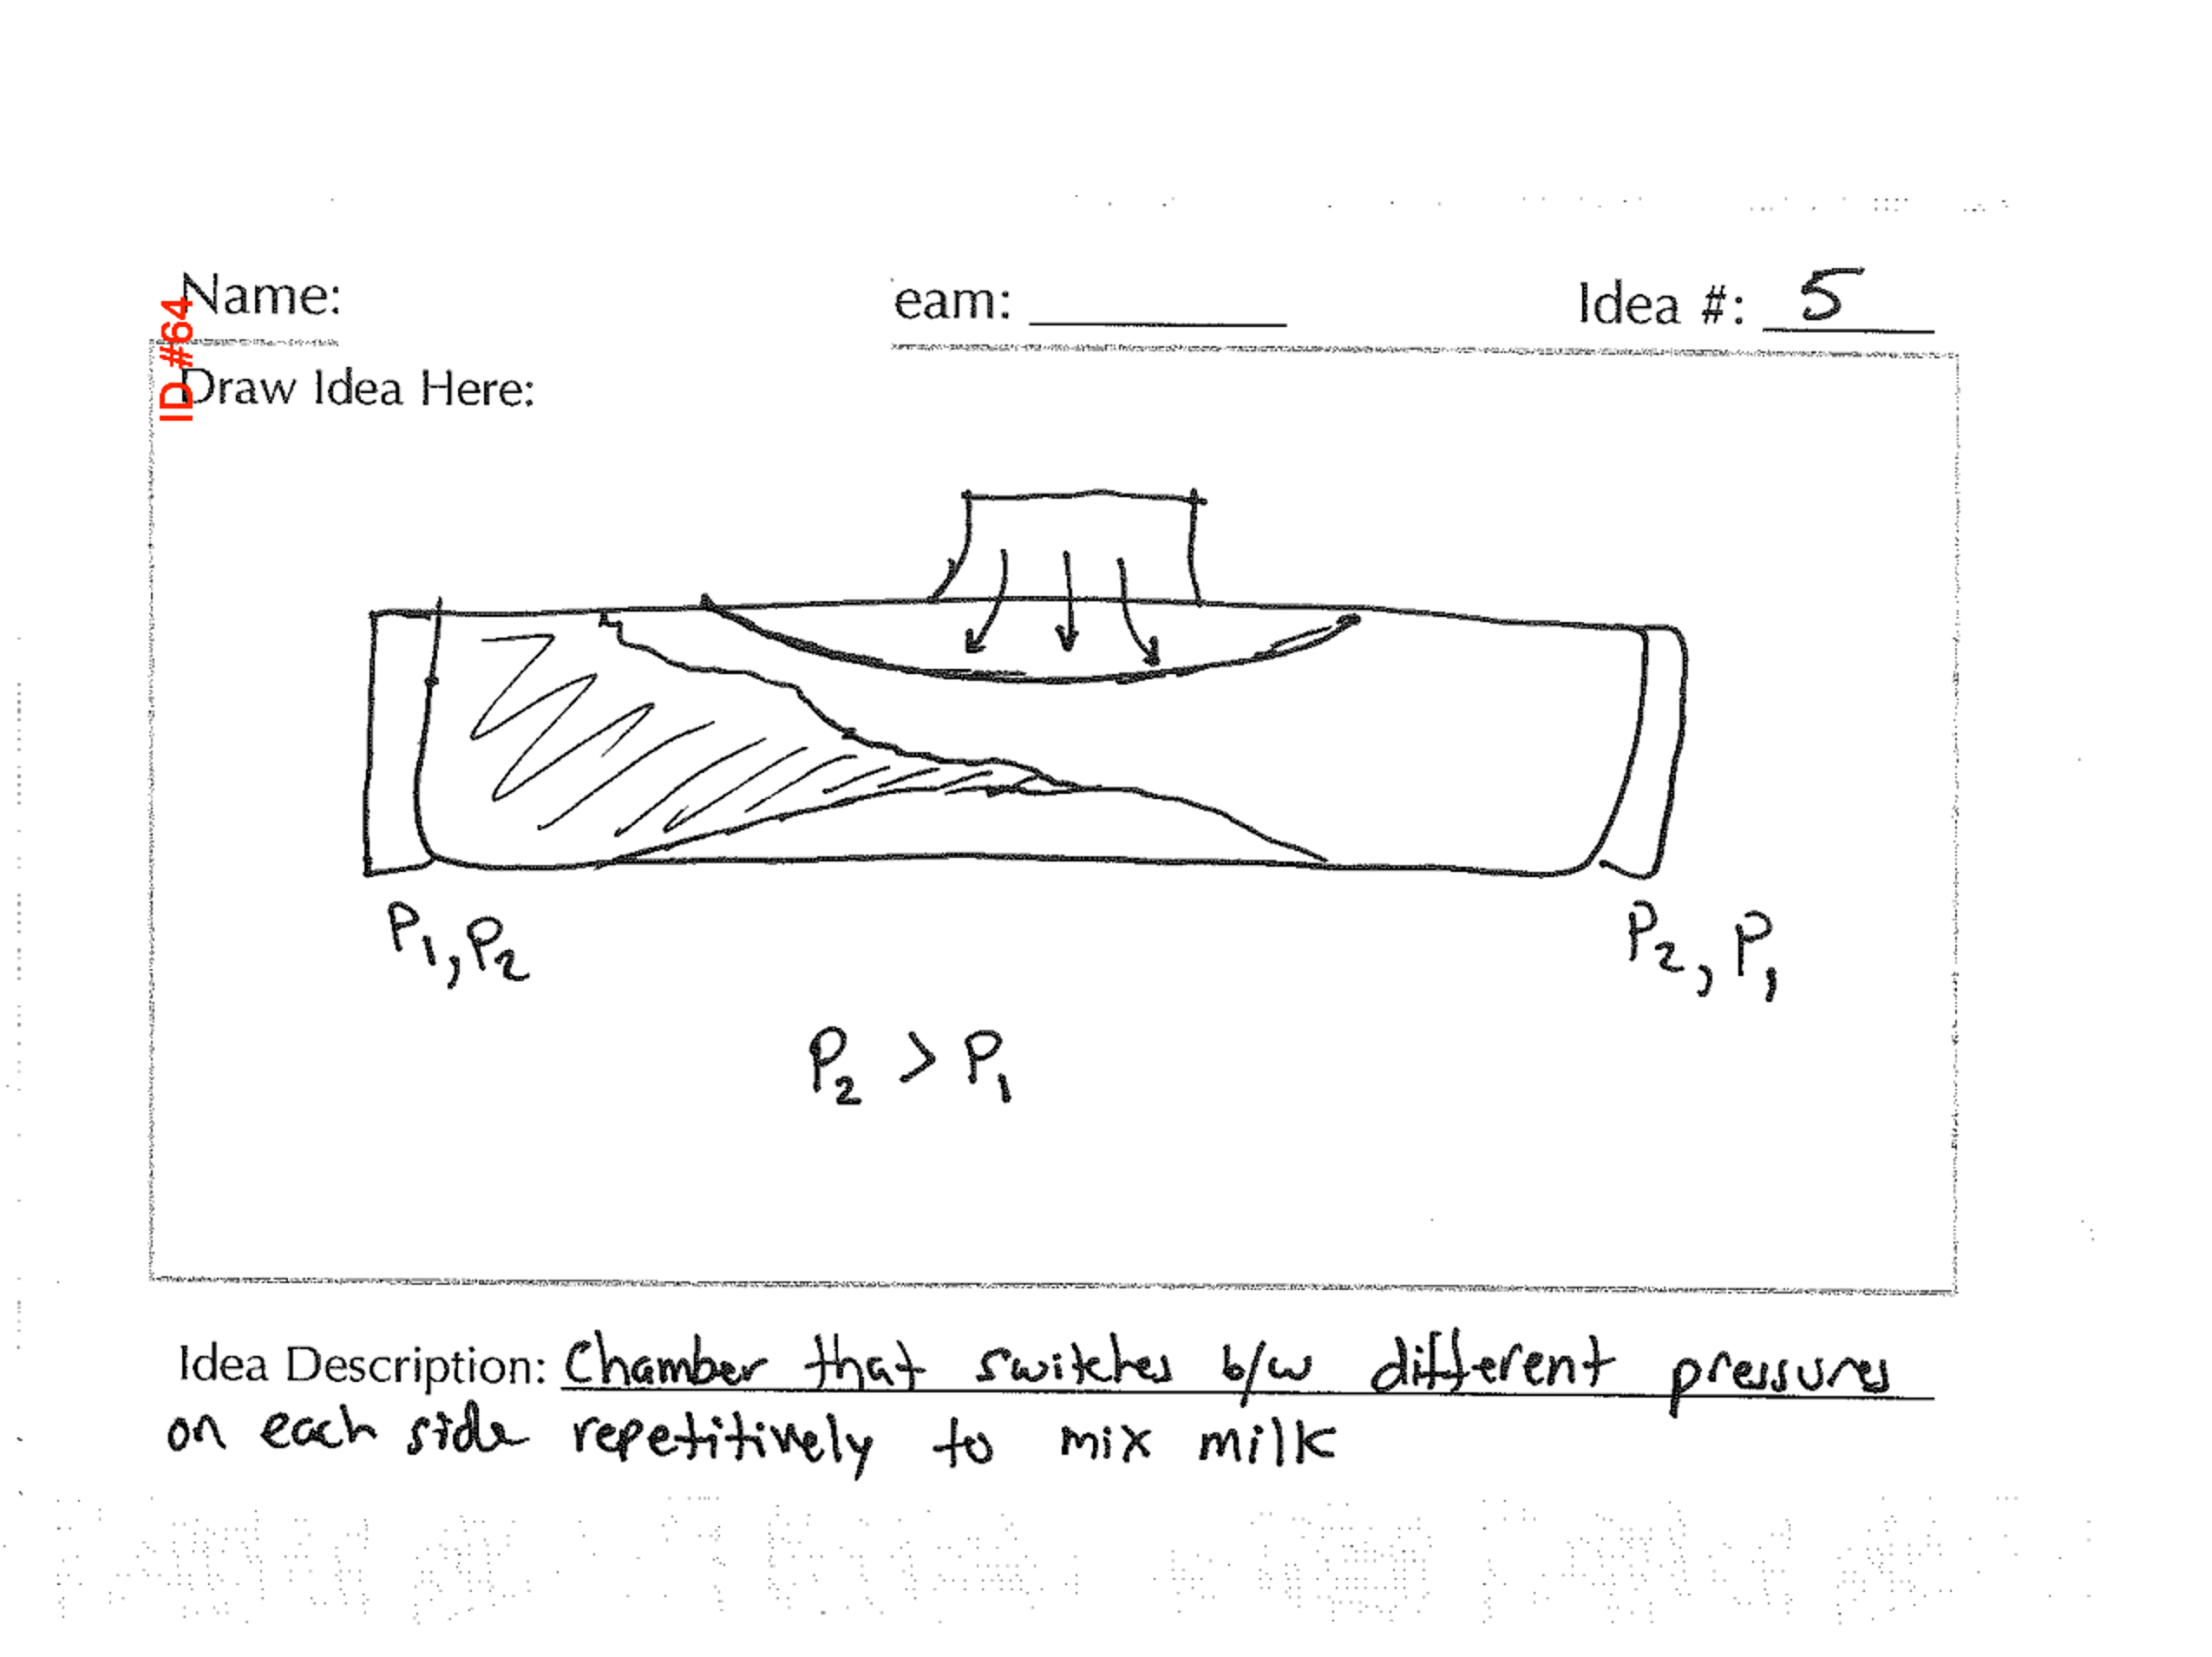 Name:
eam:
Idea #: 5
ID #64
Draw Idea Here:
P1, P2
P2, P1
P2 > P1
Idea Description: Chamber that switches b/w different pressures
on each side repetitively to mix milk